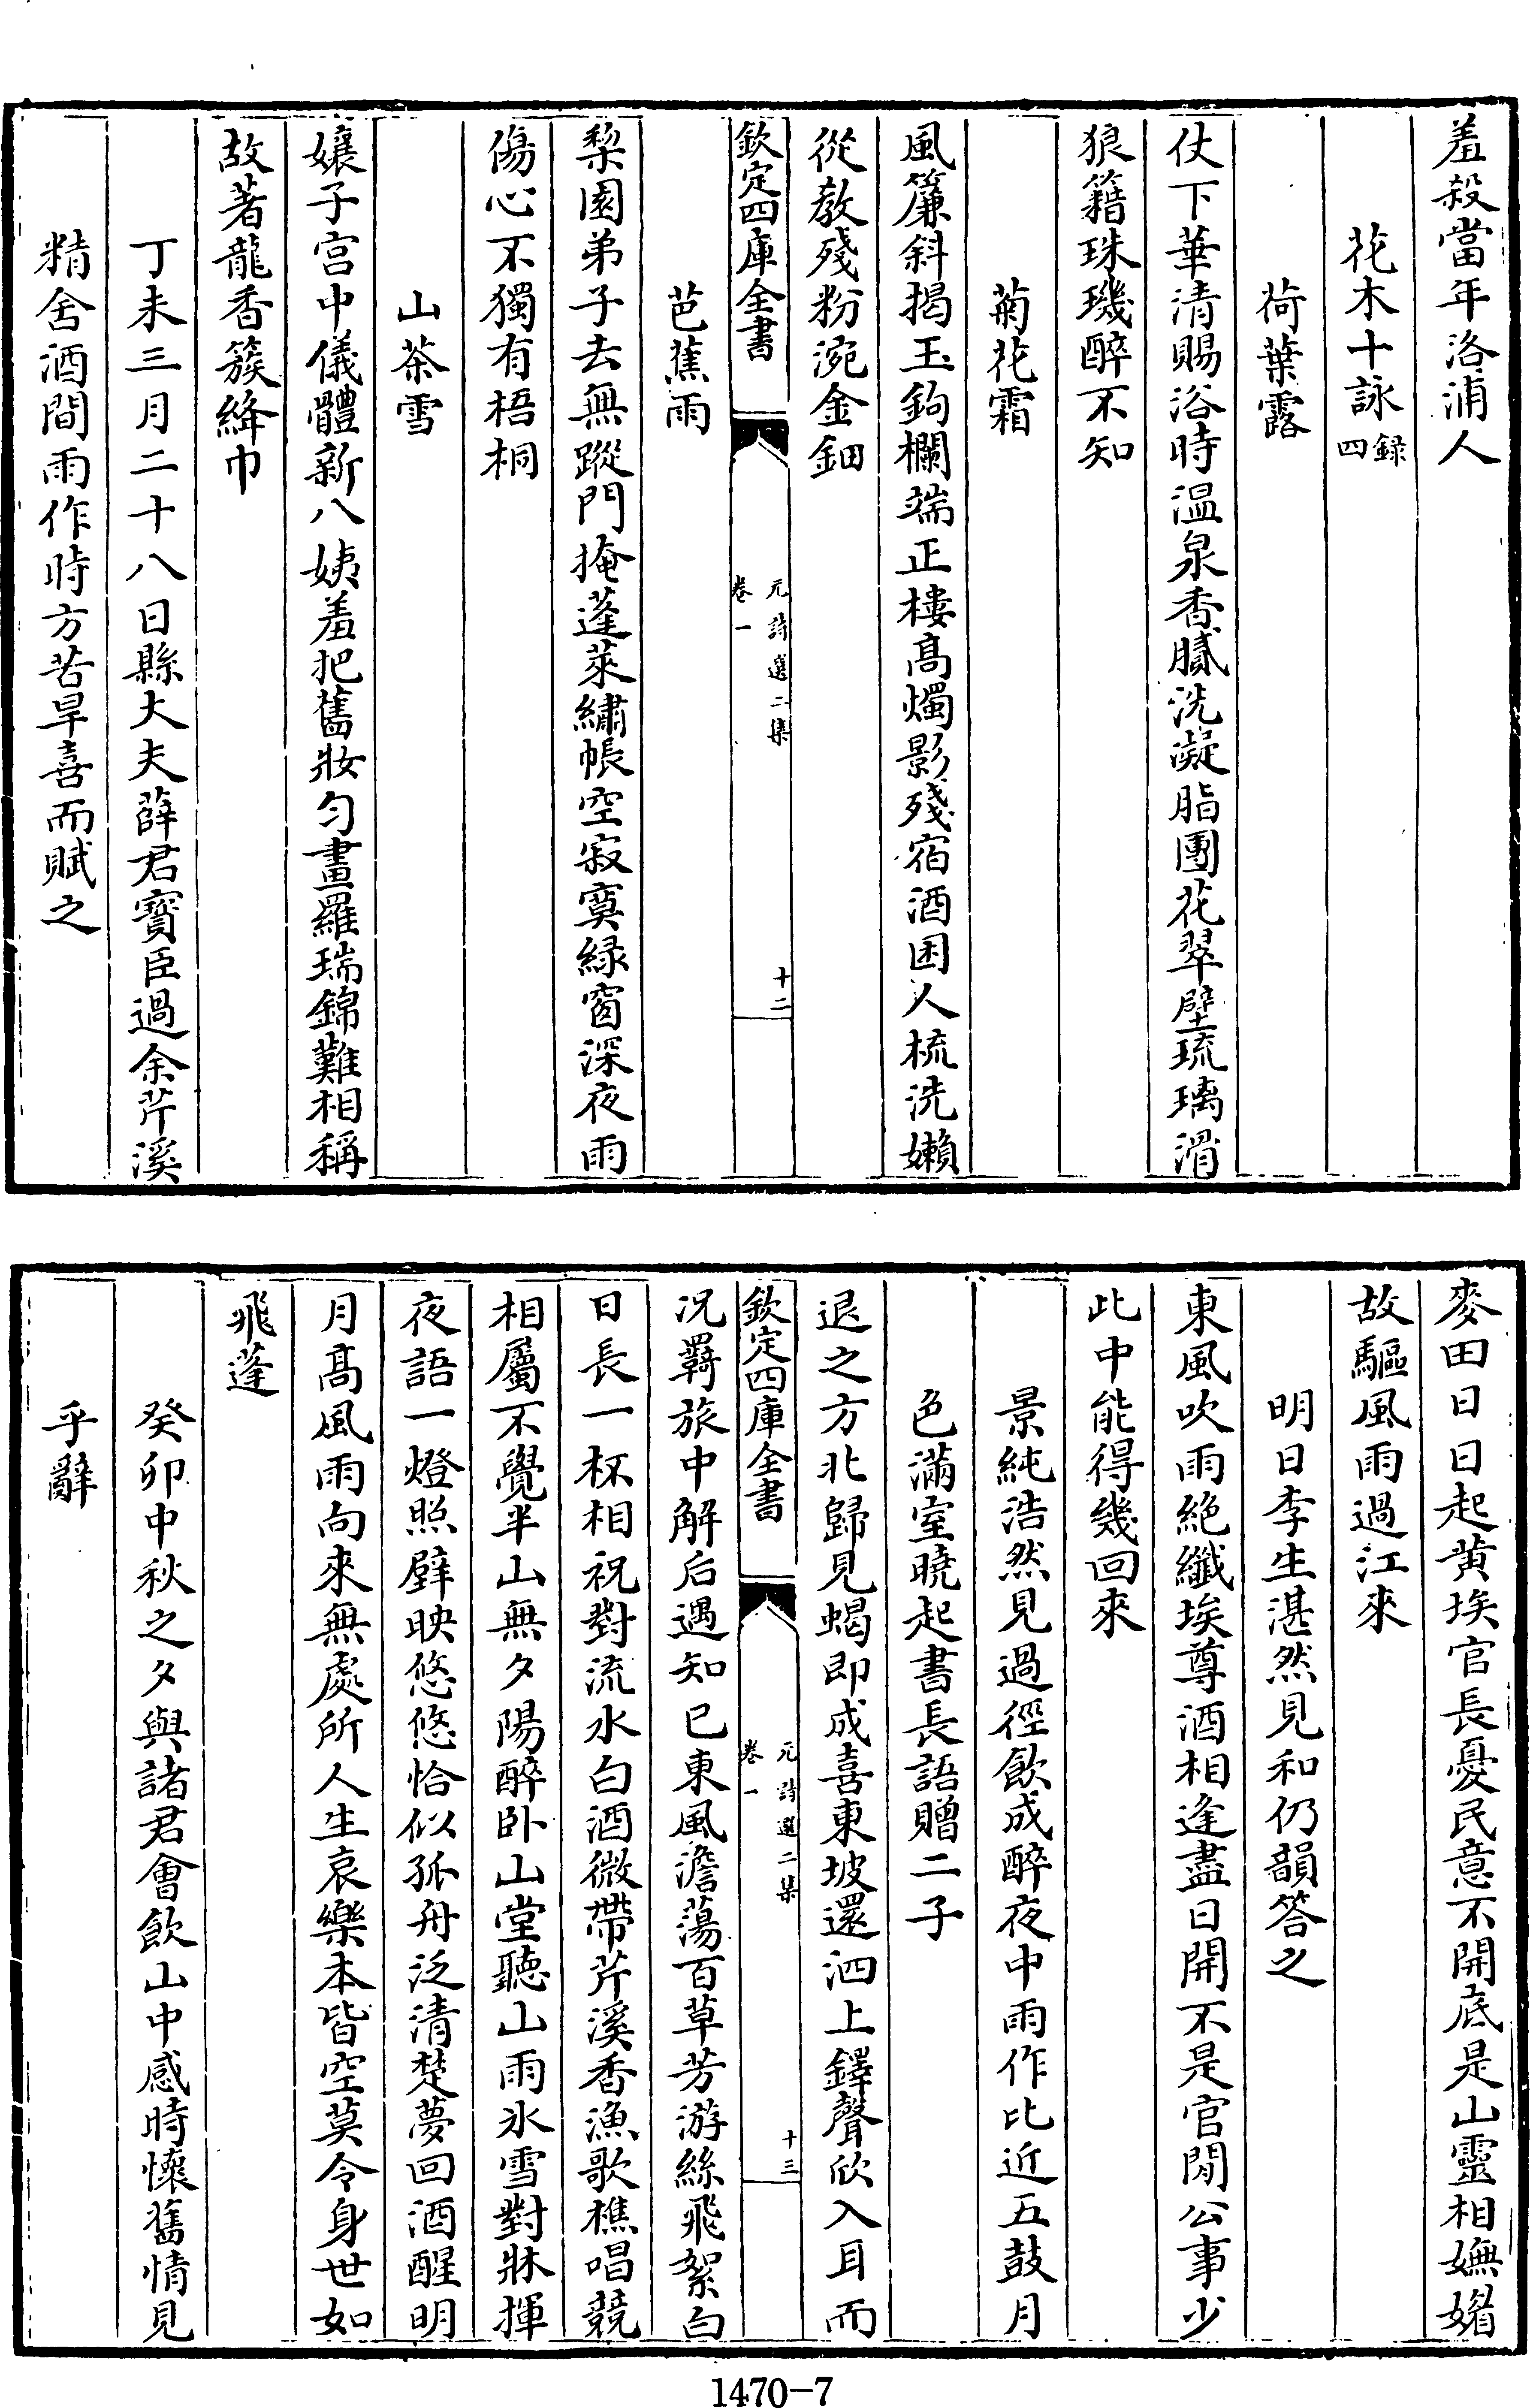 羞殺當年洛浦人
花木十詠錄四
荷葉露
仗下華清賜浴時温泉香膩洗凝脂團花翠壁琉璃滑
狼籍珠璣醉不知
菊花霜
風簾斜揭玉鉤欄端正樓髙燭影殘宿酒困人梳洗嬾
從教殘粉涴金鈿
欽定四庫全書
元詩選二集
卷一
十二
芭蕉雨
棃園弟子去無蹤門掩蓬萊繡帳空寂寞緑窗深夜雨
傷心不獨有梧桐
山茶雪
孃子宫中儀體新八姨羞把舊妝勻畫羅瑞錦難相稱
故著龍香簇絳巾
丁未三月二十八日縣大夫薛君寳臣過余芹溪
精舍酒間雨作時方苦旱喜而賦之
麥田日日起黄埃官長憂民意不開底是山靈相嫵媚
故驅風雨過江來
明日李生湛然見和仍韻答之
東風吹雨絶纖埃尊酒相逢盡日開不是官閒公事少
此中能得幾回來
景純浩然見過徑飲成醉夜中雨作比近五鼓月
色滿室曉起書長語贈二子
退之方北歸見蝎即成喜東坡還泗上鐸聲欣入耳而
欽定四庫全書
元詩選二集
卷一
十三
况羇旅中解后遇知已東風澹蕩百草芳游絲飛絮白
日長一杯相祝對流水白酒微帶芹溪香漁歌樵唱競
相屬不覺半山無夕陽醉卧山堂聽山雨氷雪對牀揮
夜語一燈照壁映悠悠恰似孤舟泛清楚夢回酒醒明
月髙風雨向來無處所人生哀樂本皆空莫令身世如
飛蓬
癸卯中秋之夕與諸君㑹飲山中感時懷舊情見
乎辭
1470-7